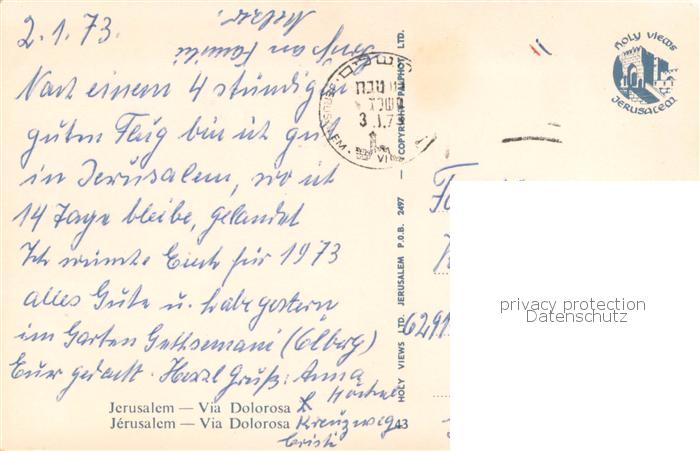 2.1.73.
Gruß an Familie
Nach einem 4 stündigen
guten Flug bin ich gut
in Jerusalem, wo ich
14 Tage bleibe, gelandet
Ich wünsche Euch für 1973
alles Gute u. habe gestern
im Garten Gethsemani (Ölberg)
Eurer gedacht. Herzl Grüße: Anna
Jerusalem — Via Dolorosa
Jérusalem — Via Dolorosa Kreuzweg
Cristi
43
HOLY VIEWS LTD. JERUSALEM P.O.B. 2497 — COPYRIGHT PALPHOT LTD.
ירושלים
JERUSALEM
3.1.73
VI
HOLY VIEWS
JERUSALEM
privacy protection
Datenschutz